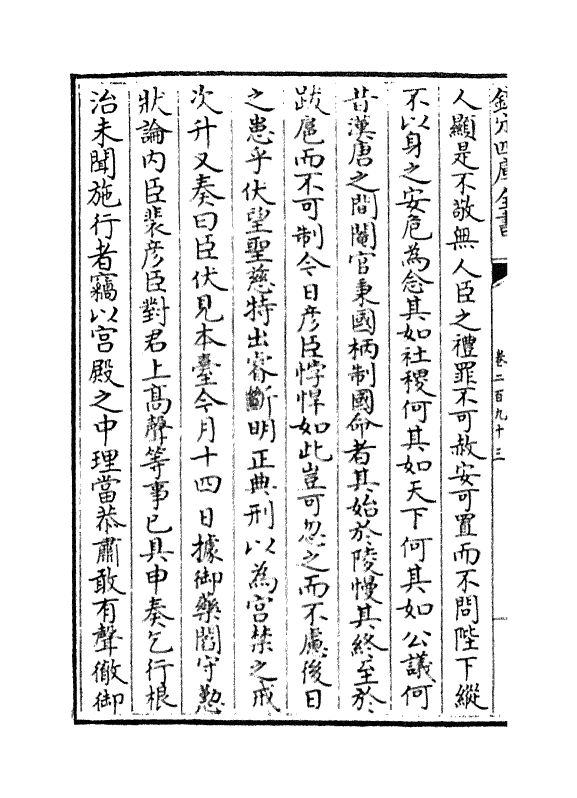 欽定四庫全書
卷二百九十三
人顯是不敬無人臣之禮罪不可赦安可置而不問陛下縱
不以身之安危為念其如社稷何其如天下何其如公議何
昔漢唐之間閹官秉國柄制國命者其始於陵慢其終至於
跋扈而不可制今日彥臣悖悍如此豈可忽之而不慮後日
之患乎伏望聖慈特出睿斷明正典刑以為宮禁之戒
次升又奏曰臣伏見本臺今月十四日據御藥閻守懃
狀論内臣裴彥臣對君上高聲等事已具申奏乞行根
治未聞施行者竊以宮殿之中理當恭肅敢有聲徹御